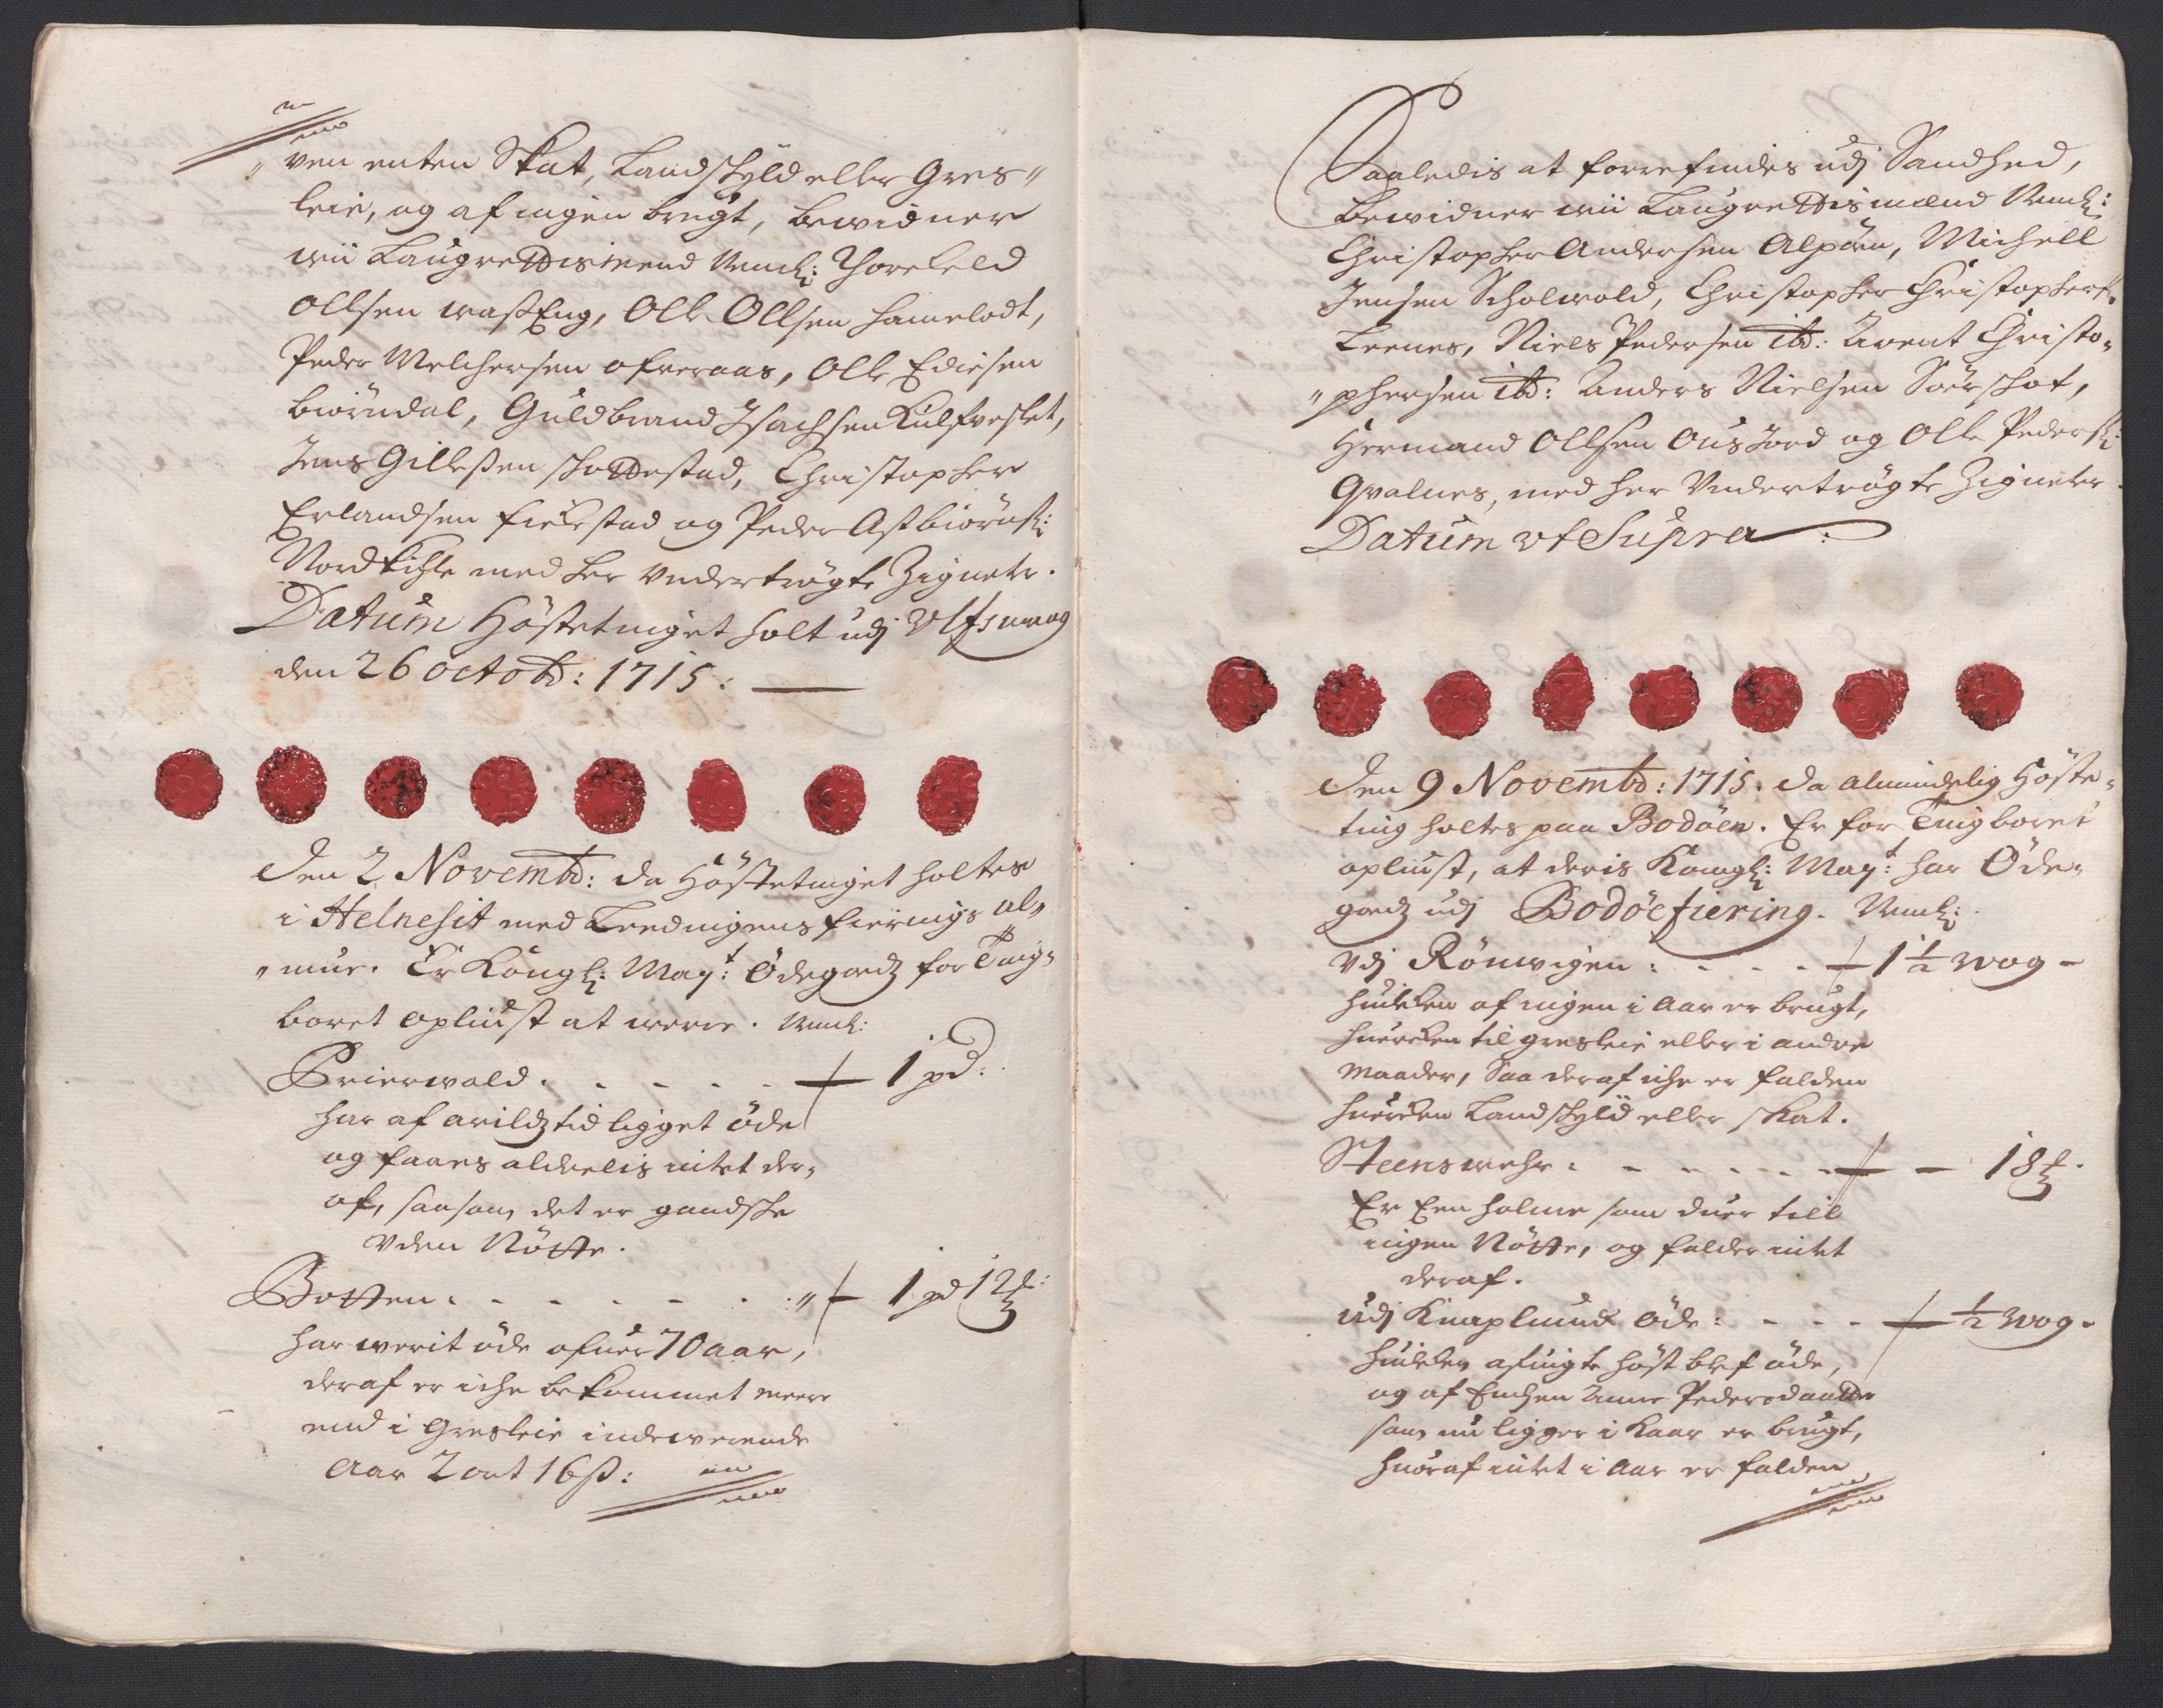 ven enten Skat, Landskyld eller Gres„
leie, og af ingen brugt, bewidner
wii Laugrettismend Nembl: Thorekeld
Ollsen wassEng, Olle Ollsen hamelodt,
Peder Melchersen ofveraas, Olle Ediesen
biörndal, Guldbrand Isachsen Kulfveslet,
Jens Gillessen skottestad, Christopher
Erlandsen fiekestad og Peder Astbiörns:
Nordkihle med her undertrögte Zigneter.
Datum Höstetinget holt udj Ulfswaag
den 26 octobr: 1715:
Den 2 Novembr: da Höstetinget holtes
i Helnesit med Leedingens fierings al„
„mue. Er Kongl: Mayt: Ödegodz for Ting„
boret opliust at were. Nembl:
Breierwald. - - - - - 1 pd:
har af arildz tid ligget öde
og faaes alldeelis intet der„
af, saasom det er gandske
uden Nötte.
Botten: - - - - - „ 1 pd 12 ℔:
har werit öde ofuer 70 aar,
deraf er iche bekommet meere
end i Gresleie indewerende
Aar 2 ort 16 s:
Saaledis at forrefindes udj Sandhed,
bewidner wii Laugrettismænd Nembl:
Christopher Andersen Alpöen, Michell
Jensen Scholwold, Christopher Christophers:
Leenes, Niels Pedersen ibd: Arent Christo„
„phersen ibd: Anders Nielsen Saurskot,
Hermand Ollsen Ousjord og Olle Peders:
Qvalnes, med her Undertrögte Zigneter.
Datum ut Supra:
Den 9 Novembr: 1715. da almindelig Höste„
ting holtes paa Bodöen. Er for Tingboret
opliust, at deris Kongl: Mayt: har Öde„
godz udj Bodöefiering. Nembl:
Udj Rönwigen: - - - - 1½ wog -
huilken af ingen i Aar er brugt,
huerken til gresleie eller i andre
maader, Saa deraf iche er falden
huerken Landskyld eller skat.
Steenswehr: - - - - - - 18 ℔.
Er Een holme som duer till
ingen Nötte, og falder intet
deraf.
udj Knaplund öde: - - - - ½ wog -
huilken afuigte höst blef öde,
og af Enchen Anne Pedersdaatter
som nu ligger i Kaar er brugt,
huoraf intet i Aar er falden